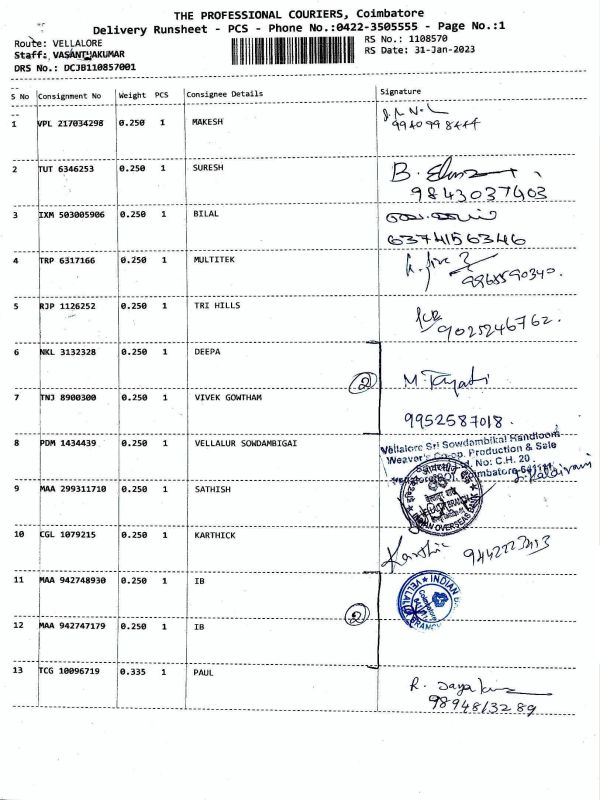 THE PROFESSIONAL COURIERS, Coimbatore
Delivery Runsheet - PCS - Phone No.:0422-3505555 - Page No.:1
Route: VELLALORE
RS No.: 1108570
Staff: VASANTHAKUMAR
RS Date: 31-Jan-2023
DRS No.: DCJB110857001
S No Consignment No Weight PCS Consignee Details Signature
1 VPL 217034298 0.250 1 MAKESH
9940998444
2 TUT 6346253 0.250 1 SURESH B.
9843037403
3 IXM 503005906 0.250 1 BILAL
6374156346
4 TRP 6317166 0.250 1 MULTITEK
9968590340.
5 RJP 1126252 0.250 1 TRI HILLS
9025246762.
6 NKL 3132328 0.250 1 DEEPA
2 M.
7 TNJ 8900300 0.250 1 VIVEK GOWTHAM
9952587018.
8 PDM 1434439 0.250 1 VELLALUR SOWDAMBIGAI
Vellalore Sri Sowdambikai Handloom
Weaver's Co-op. Production & Sale
No: C.H. 20
Coimbatore-641111
9 MAA 299311710 0.250 1 SATHISH
INDIAN OVERSEAS BANK
10 CGL 1079215 0.250 1 KARTHICK
Karthic 9442223413
11 MAA 942748930 0.250 1 IB
INDIAN
Coimbatore
VELLALORE BRANCH
2
12 MAA 942747179 0.250 1 IB
13 TCG 10096719 0.335 1 PAUL
R.
9894813289